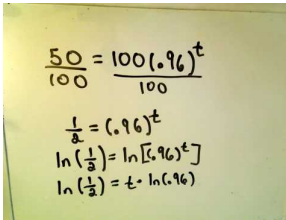 50/100 = 100(.96)^t/100
1/2 = (.96)^t
ln(1/2) = ln[(.96)^t]
ln(1/2) = t• ln(.96)